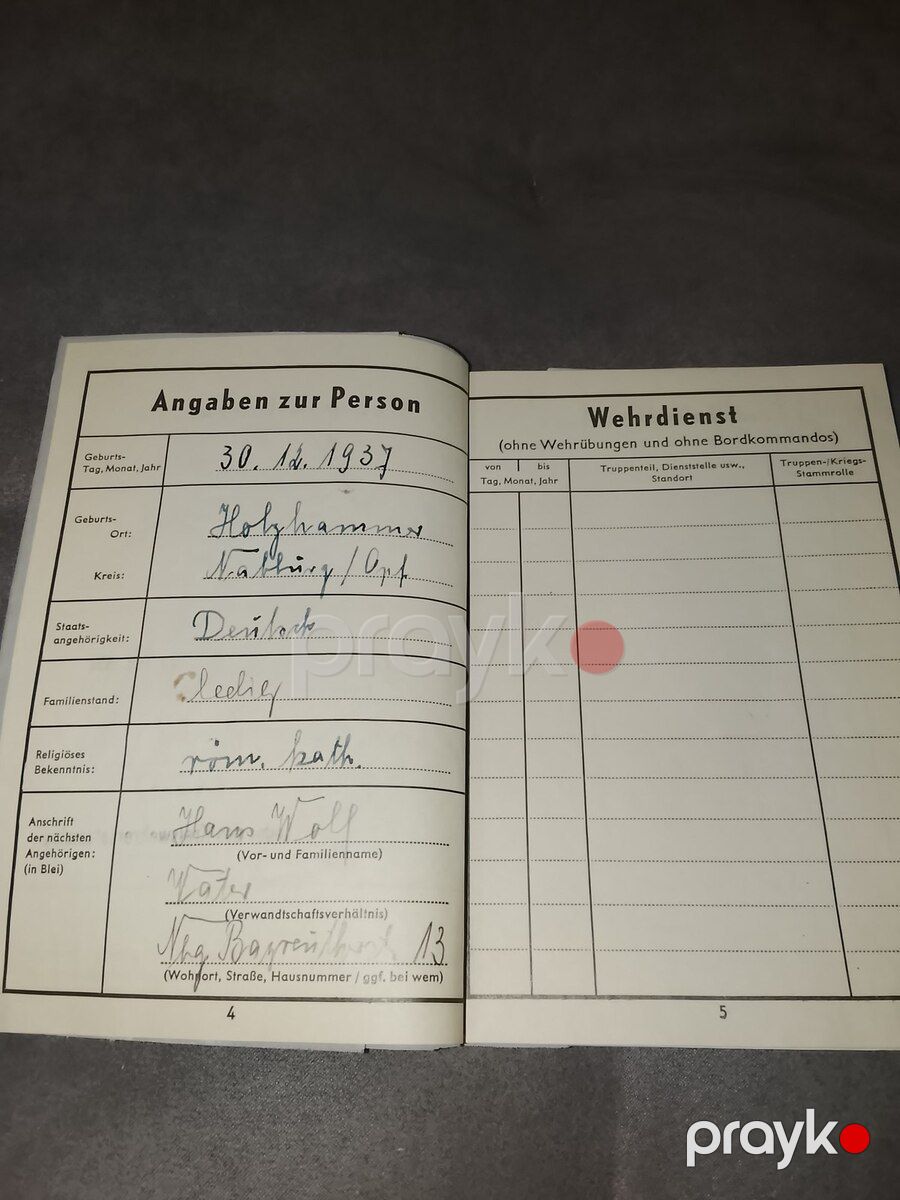 Angaben zur Person
Geburts-
Tag, Monat, Jahr
30. 12. 1937
Geburts-
Ort:
Holzhammer
Kreis:
Nabburg / Opf.
Staats-
angehörigkeit:
Deutsch
Familienstand:
ledig
Religiöses
Bekenntnis:
röm. kath.
Anschrift
der nächsten
Angehörigen:
(in Blei)
Hans Wolf
(Vor- und Familienname)
Vater
(Verwandtschaftsverhältnis)
Nbg 13
(Wohnort, Straße, Hausnummer / ggf. bei wem)
4
Wehrdienst
(ohne Wehrübungen und ohne Bordkommandos)
von bis
Tag, Monat, Jahr
Truppenteil, Dienststelle usw.,
Standort
Truppen-/Kriegs-
Stammrolle
5
prayko
prayko